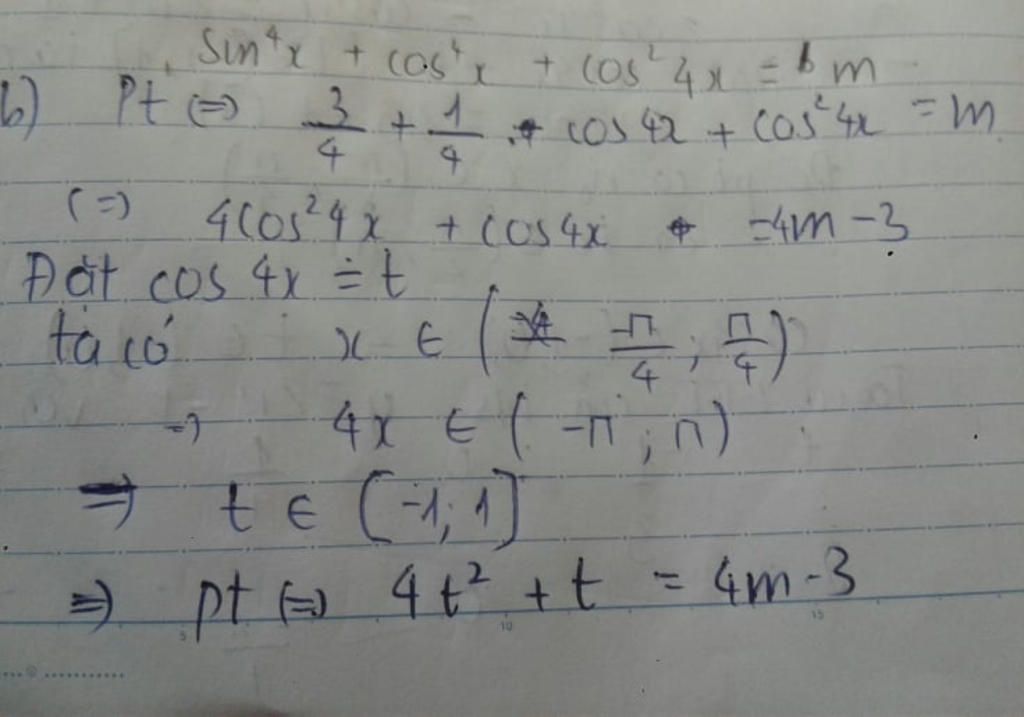 sin⁴x + cos⁴x + cos²4x = m
b) Pt (=) 3/4 + 1/4 . cos 4x + cos²4x = m
(=) 4cos²4x + cos4x = 4m - 3
Đặt cos 4x = t
ta có x ∈ ( -π/4 ; π/4 )
=) 4x ∈ ( -π ; π )
=) t ∈ [ -1 ; 1 ]
=) pt (=) 4t² + t = 4m - 3
5 10 15